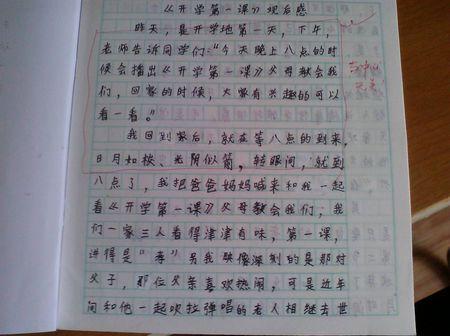 《开学第一课》观后感
昨天，是开学地第一天，下午，
老师告诉同学们："今天晚上八点的时
候会播出《开学第一课》父母教会我
们，回家的时候，大家有兴趣的可以
看一看。"
我回到家后，就在等八点的到来，
日月如梭、光阴似箭，转眼间，就到
八点了，我把爸爸妈妈喊来和我一起
看《开学第一课》父母教会我们，我
们一家三人看得津津有味，第一课，
讲得是"孝"另我映像深刻的是那对
父子，那位父亲喜欢热闹，可是近年
间和他一起吹拉弹唱的老人相继去世
与中心
无关